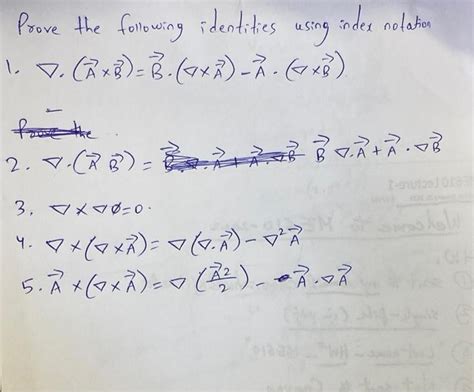 Prove the following identities using index notation
1. ∇·(A⃗×B⃗)=B⃗·(∇×A⃗)−A⃗·(∇×B⃗)
2. ∇·(A⃗ B⃗) = B⃗ ∇·A⃗+A⃗·∇B⃗
3. ∇×∇Ø=0.
4. ∇×(∇×A⃗)=∇(∇·A⃗)−∇²A⃗
5. A⃗×(∇×A⃗)=∇(A⃗²/2)−A⃗·∇A⃗